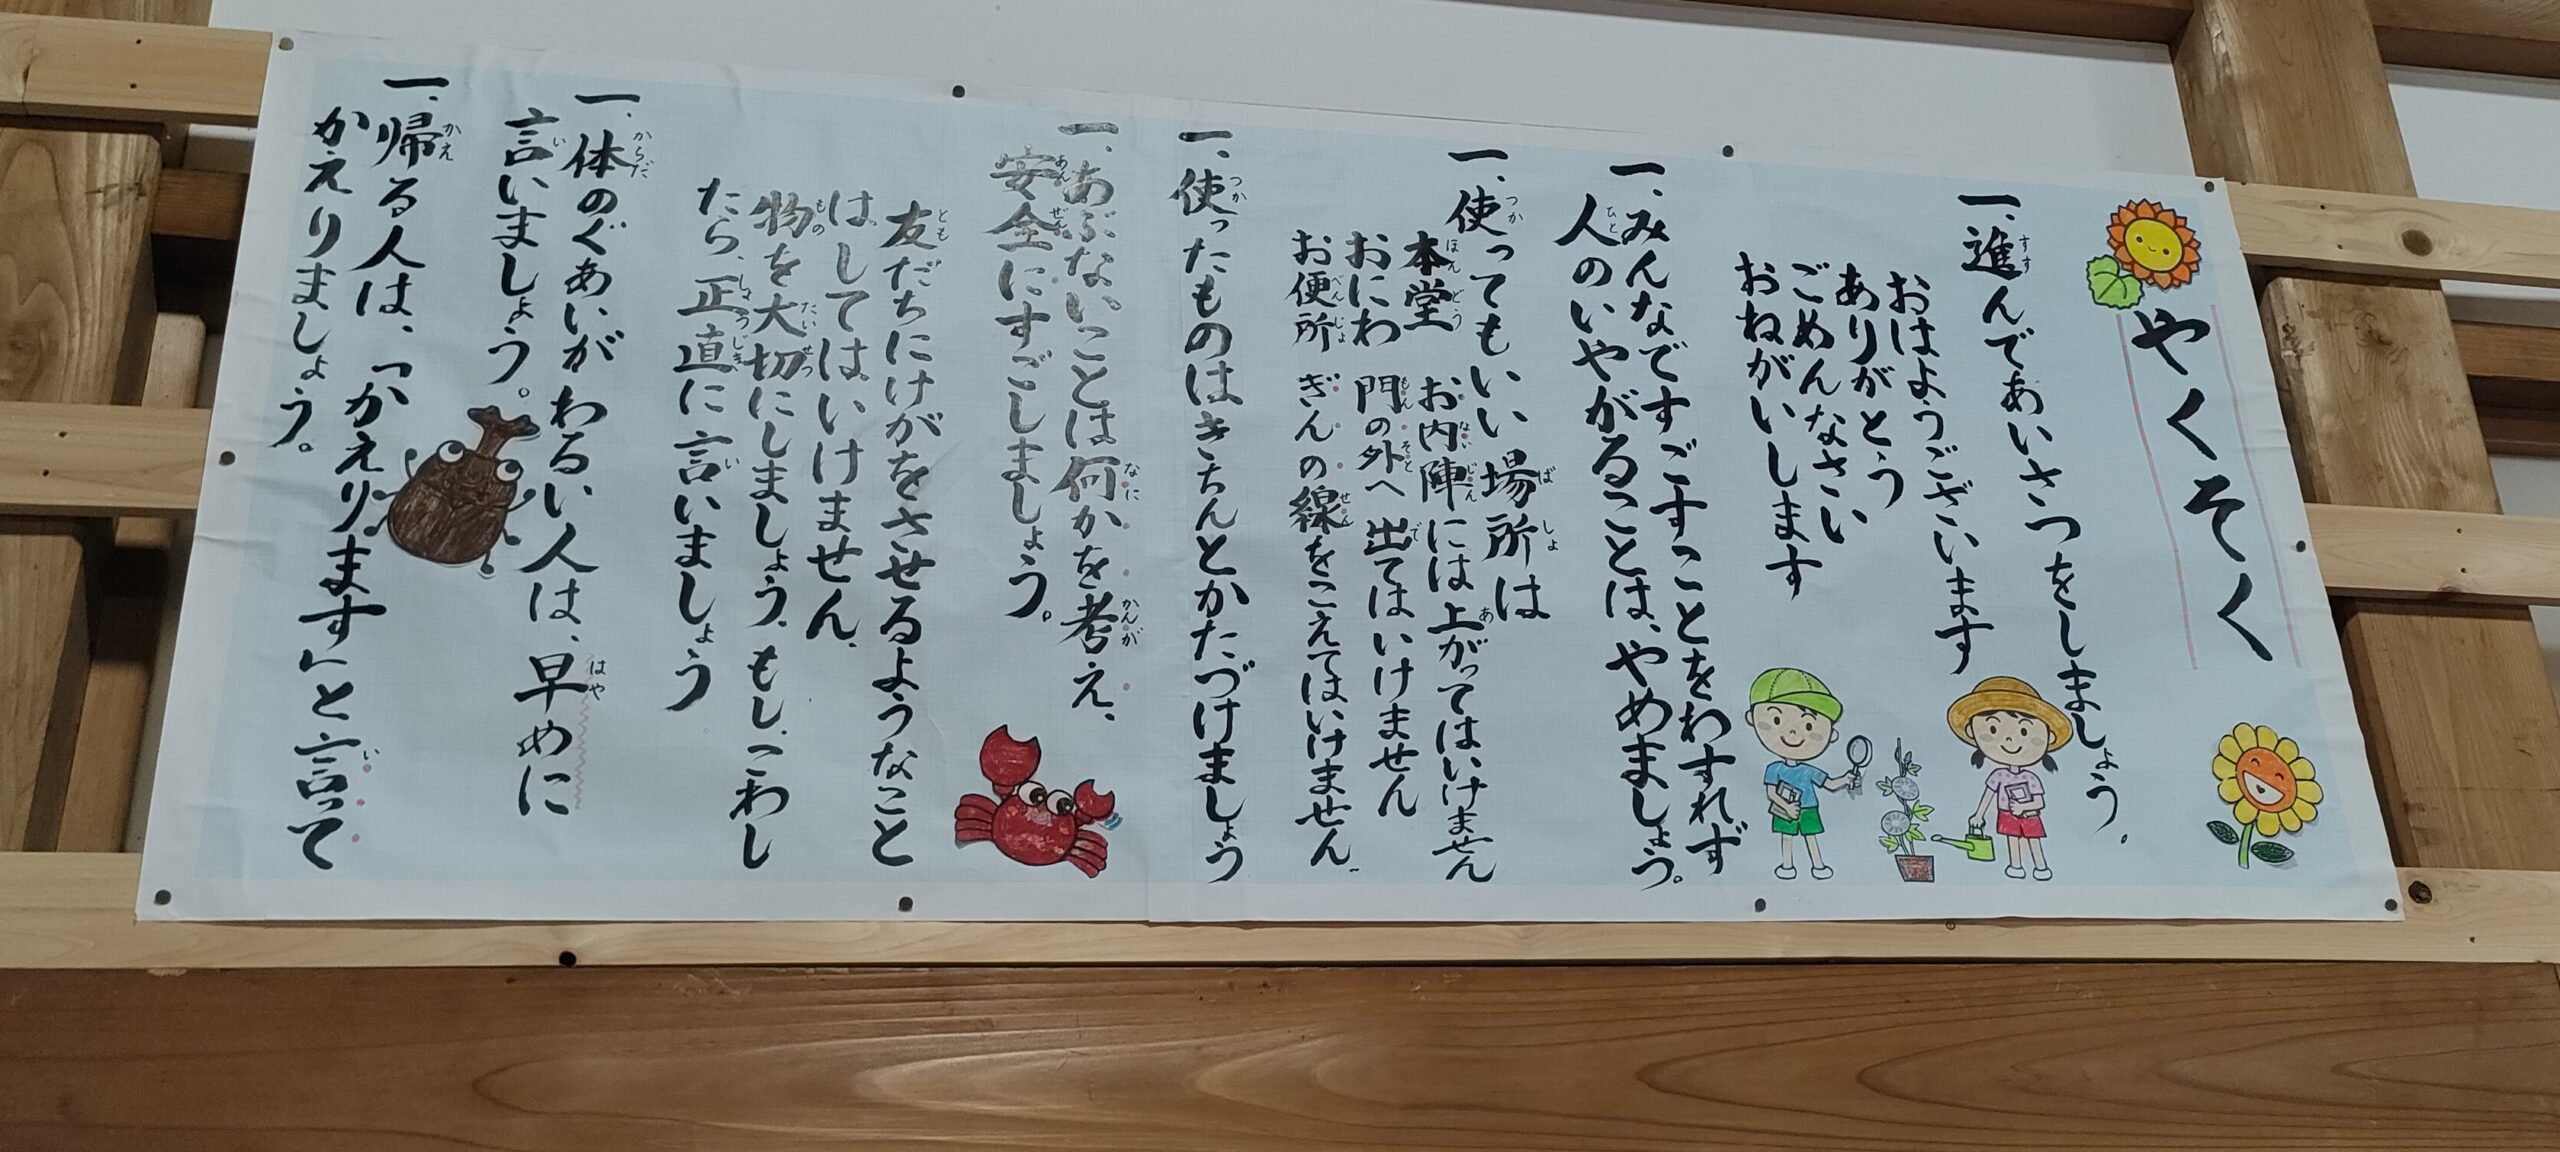 やくそく
一、進んであいさつをしましょう。
おはようございます
ありがとう
ごめんなさい
おねがいします
一、みんなですごすことをわすれず
人のいやがることは、やめましょう。
一、使ってもいい場所は
本堂 お内陣には上がってはいけません
おにわ 門の外へ出てはいけません
お便所 ぎんの線をこえてはいけません。
一、使ったものはきちんとかたづけましょう
一、あぶないことは何かを考え、
安全にすごしましょう。
友だちにけがをさせるようなこと
は、してはいけません、
物を大切にしましょう、もし、こわし
たら、正直に言いましょう
一、体のぐあいがわるい人は、早めに
言いましょう。
一、帰る人は、「かえります」と言って
かえりましょう。